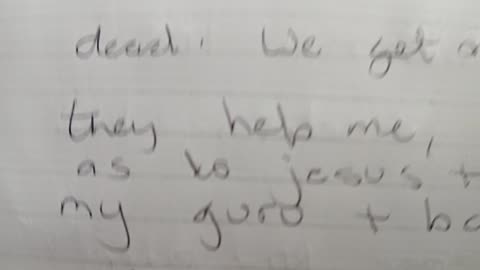 dead. We get
they help me,
as to jesus +
my guru +